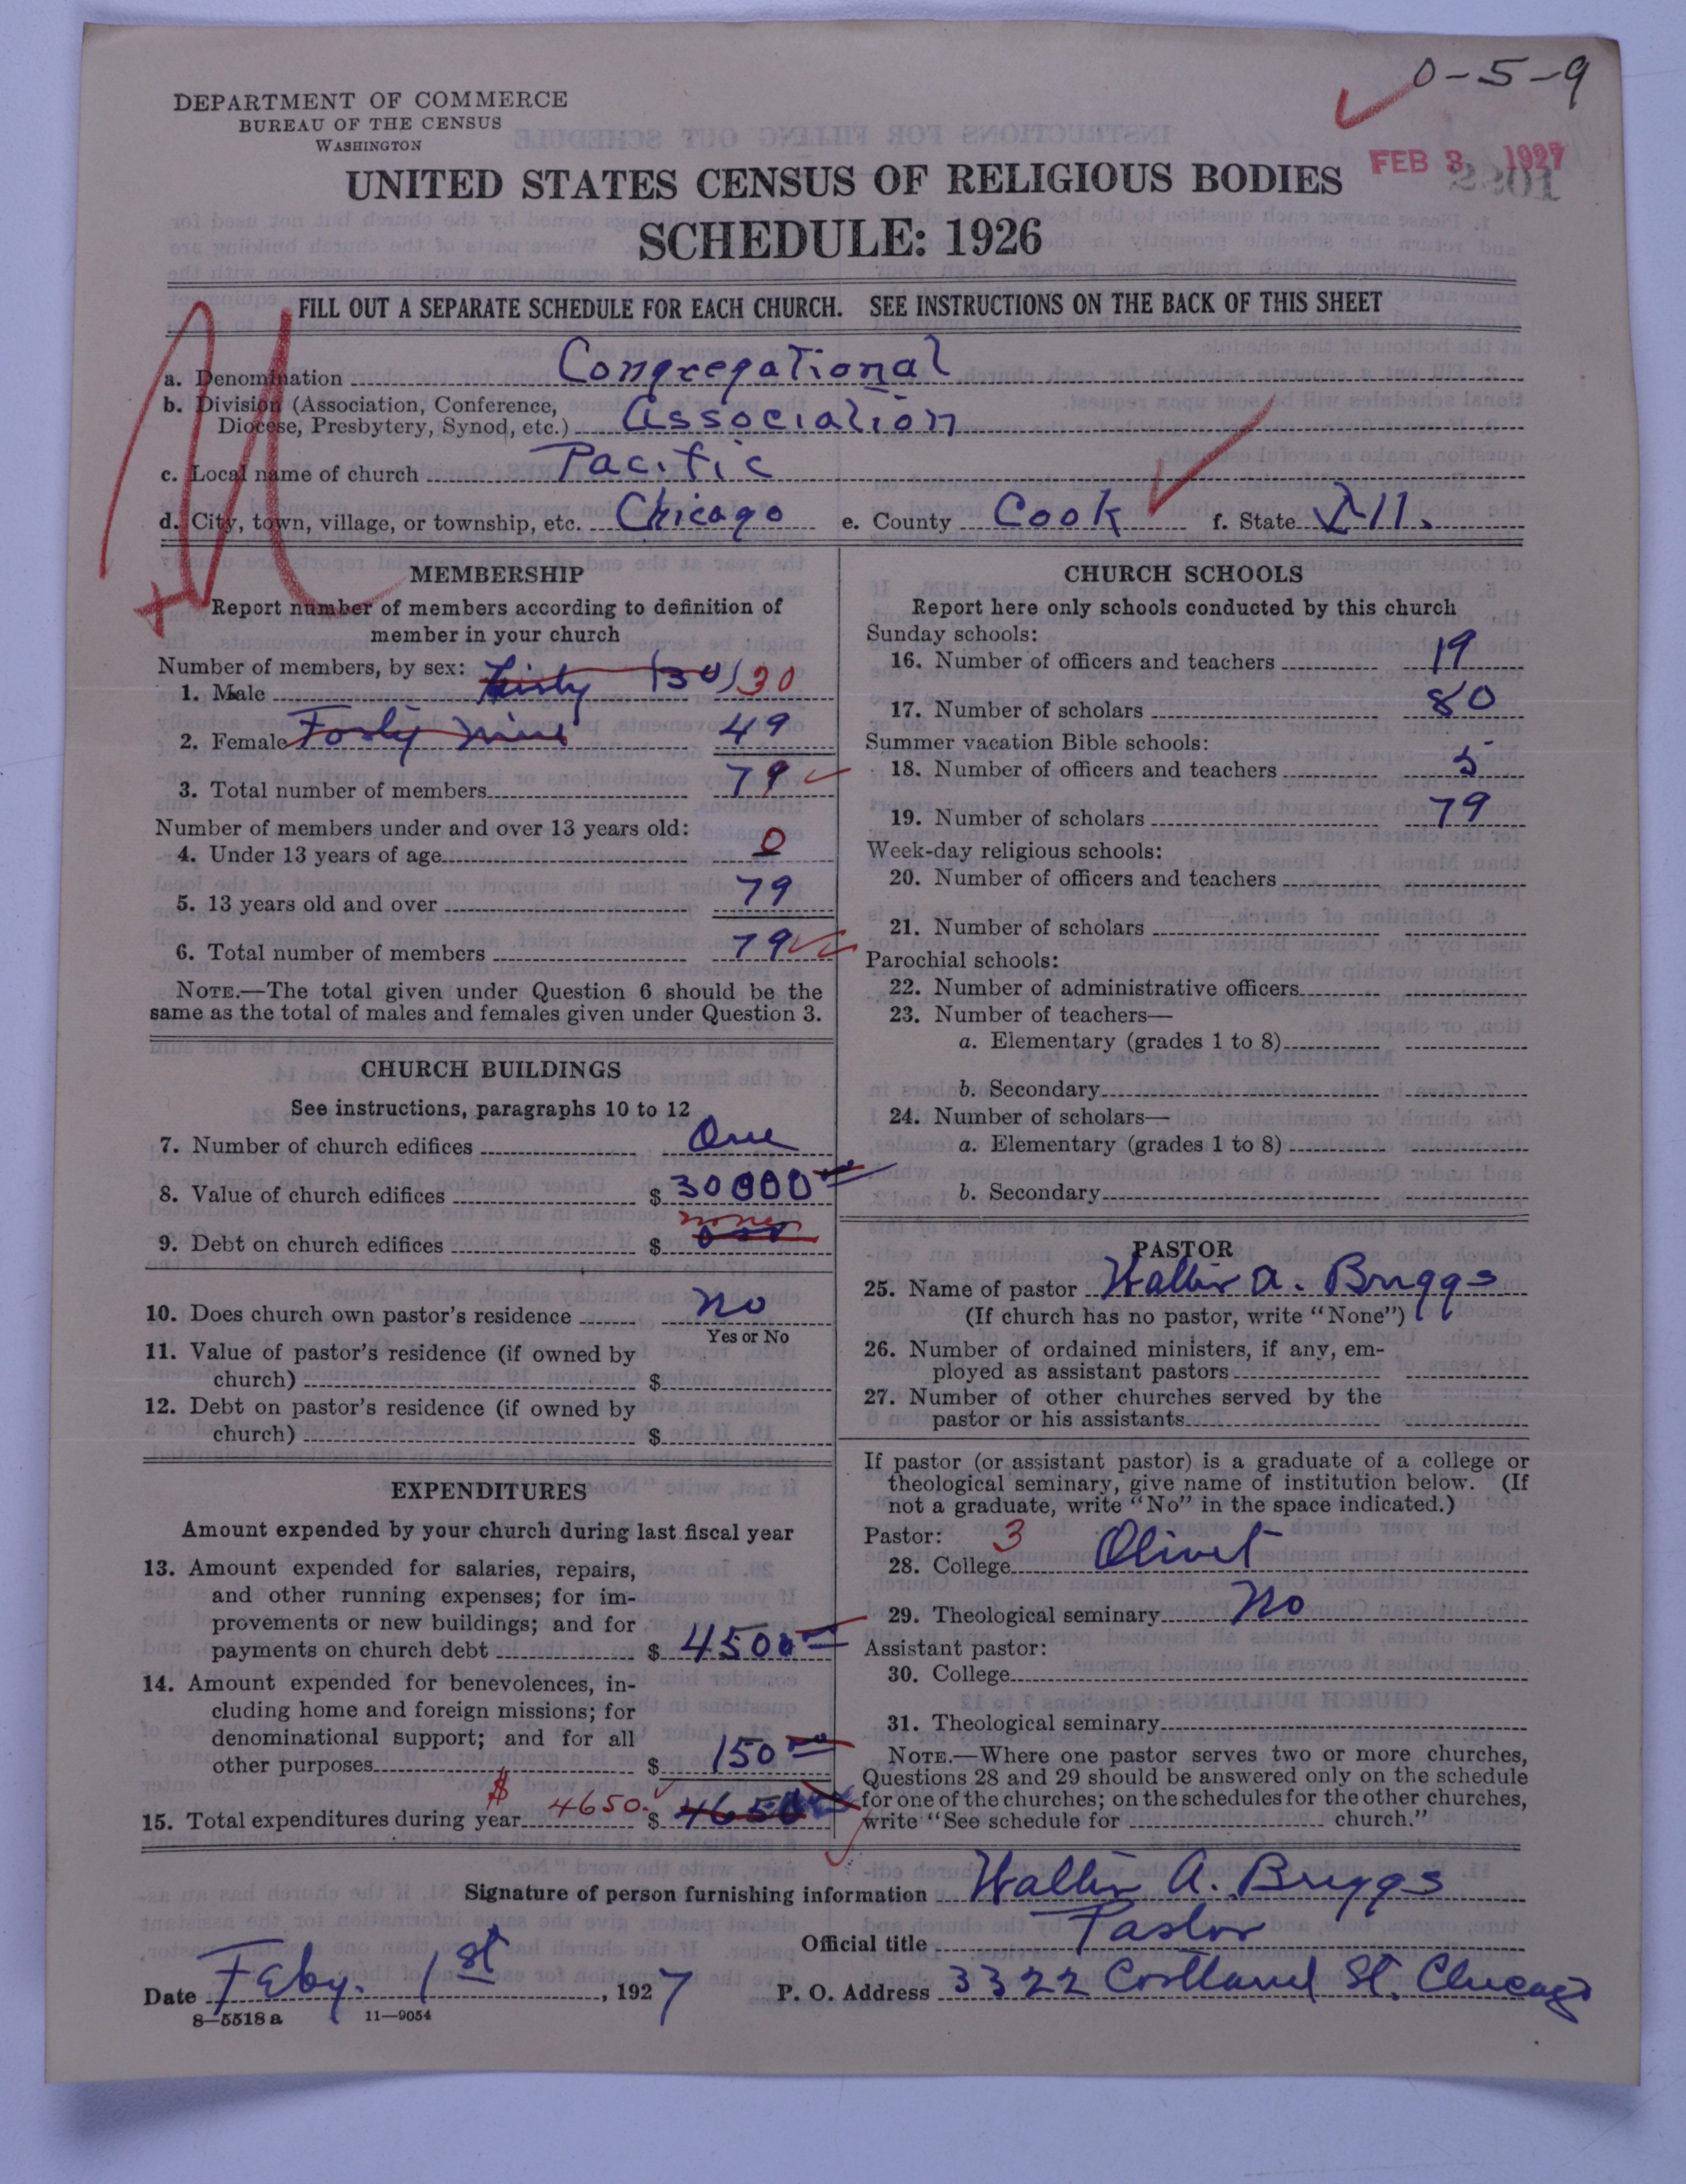 0-5-9
DEPARTMENT OF COMMERCE
BUREAU OF THE CENSUS
WASHINGTON
FEB 3 1927
2201
UNITED STATES CENSUS OF RELIGIOUS BODIES
SCHEDULE: 1926
FILL OUT A SEPARATE SCHEDULE FOR EACH CHURCH. SEE INSTRUCTIONS ON THE BACK OF THIS SHEET
a. Denomination Congregational
b. Division (Association, Conference,
Diocese, Presbytery, Synod, etc.) Association
c. Local name of church Pacific
d. City, town, village, or township, etc. Chicago e. County Cook f. State Ill.
MEMBERSHIP
Report number of members according to definition of
member in your church
Number of members, by sex:
1. Male Thirty (30) 30
2. Female Forty nine 49
3. Total number of members 79
Number of members under and over 13 years old:
4. Under 13 years of age 0
5. 13 years old and over 79
6. Total number of members 79
NOTE.—The total given under Question 6 should be the
same as the total of males and females given under Question 3.
CHURCH BUILDINGS
See instructions, paragraphs 10 to 12
7. Number of church edifices One
8. Value of church edifices $ 30000
9. Debt on church edifices $ none
10. Does church own pastor's residence No
Yes or No
11. Value of pastor's residence (if owned by
church) $
12. Debt on pastor's residence (if owned by
church) $
EXPENDITURES
Amount expended by your church during last fiscal year
13. Amount expended for salaries, repairs,
and other running expenses; for im-
provements or new buildings; and for
payments on church debt $ 4500
14. Amount expended for benevolences, in-
cluding home and foreign missions; for
denominational support; and for all
other purposes $ 150
15. Total expenditures during year $ 4650. $ 4650
CHURCH SCHOOLS
Report here only schools conducted by this church
Sunday schools:
16. Number of officers and teachers 19
17. Number of scholars 80
Summer vacation Bible schools:
18. Number of officers and teachers 5
19. Number of scholars 79
Week-day religious schools:
20. Number of officers and teachers
21. Number of scholars
Parochial schools:
22. Number of administrative officers
23. Number of teachers—
a. Elementary (grades 1 to 8)
b. Secondary
24. Number of scholars—
a. Elementary (grades 1 to 8)
b. Secondary
PASTOR
25. Name of pastor Walter A. Briggs
(If church has no pastor, write "None")
26. Number of ordained ministers, if any, em-
ployed as assistant pastors
27. Number of other churches served by the
pastor or his assistants
If pastor (or assistant pastor) is a graduate of a college or
theological seminary, give name of institution below. (If
not a graduate, write "No" in the space indicated.)
Pastor: 3
28. College Olivet
29. Theological seminary No
Assistant pastor:
30. College
31. Theological seminary
NOTE.—Where one pastor serves two or more churches,
Questions 28 and 29 should be answered only on the schedule
for one of the churches; on the schedules for the other churches,
write "See schedule for church."
Signature of person furnishing information Walter A. Briggs
Official title Pastor
Date Feby. 1st, 1927 P. O. Address 3322 Cortland St. Chicago
8—5518 a 11—9054